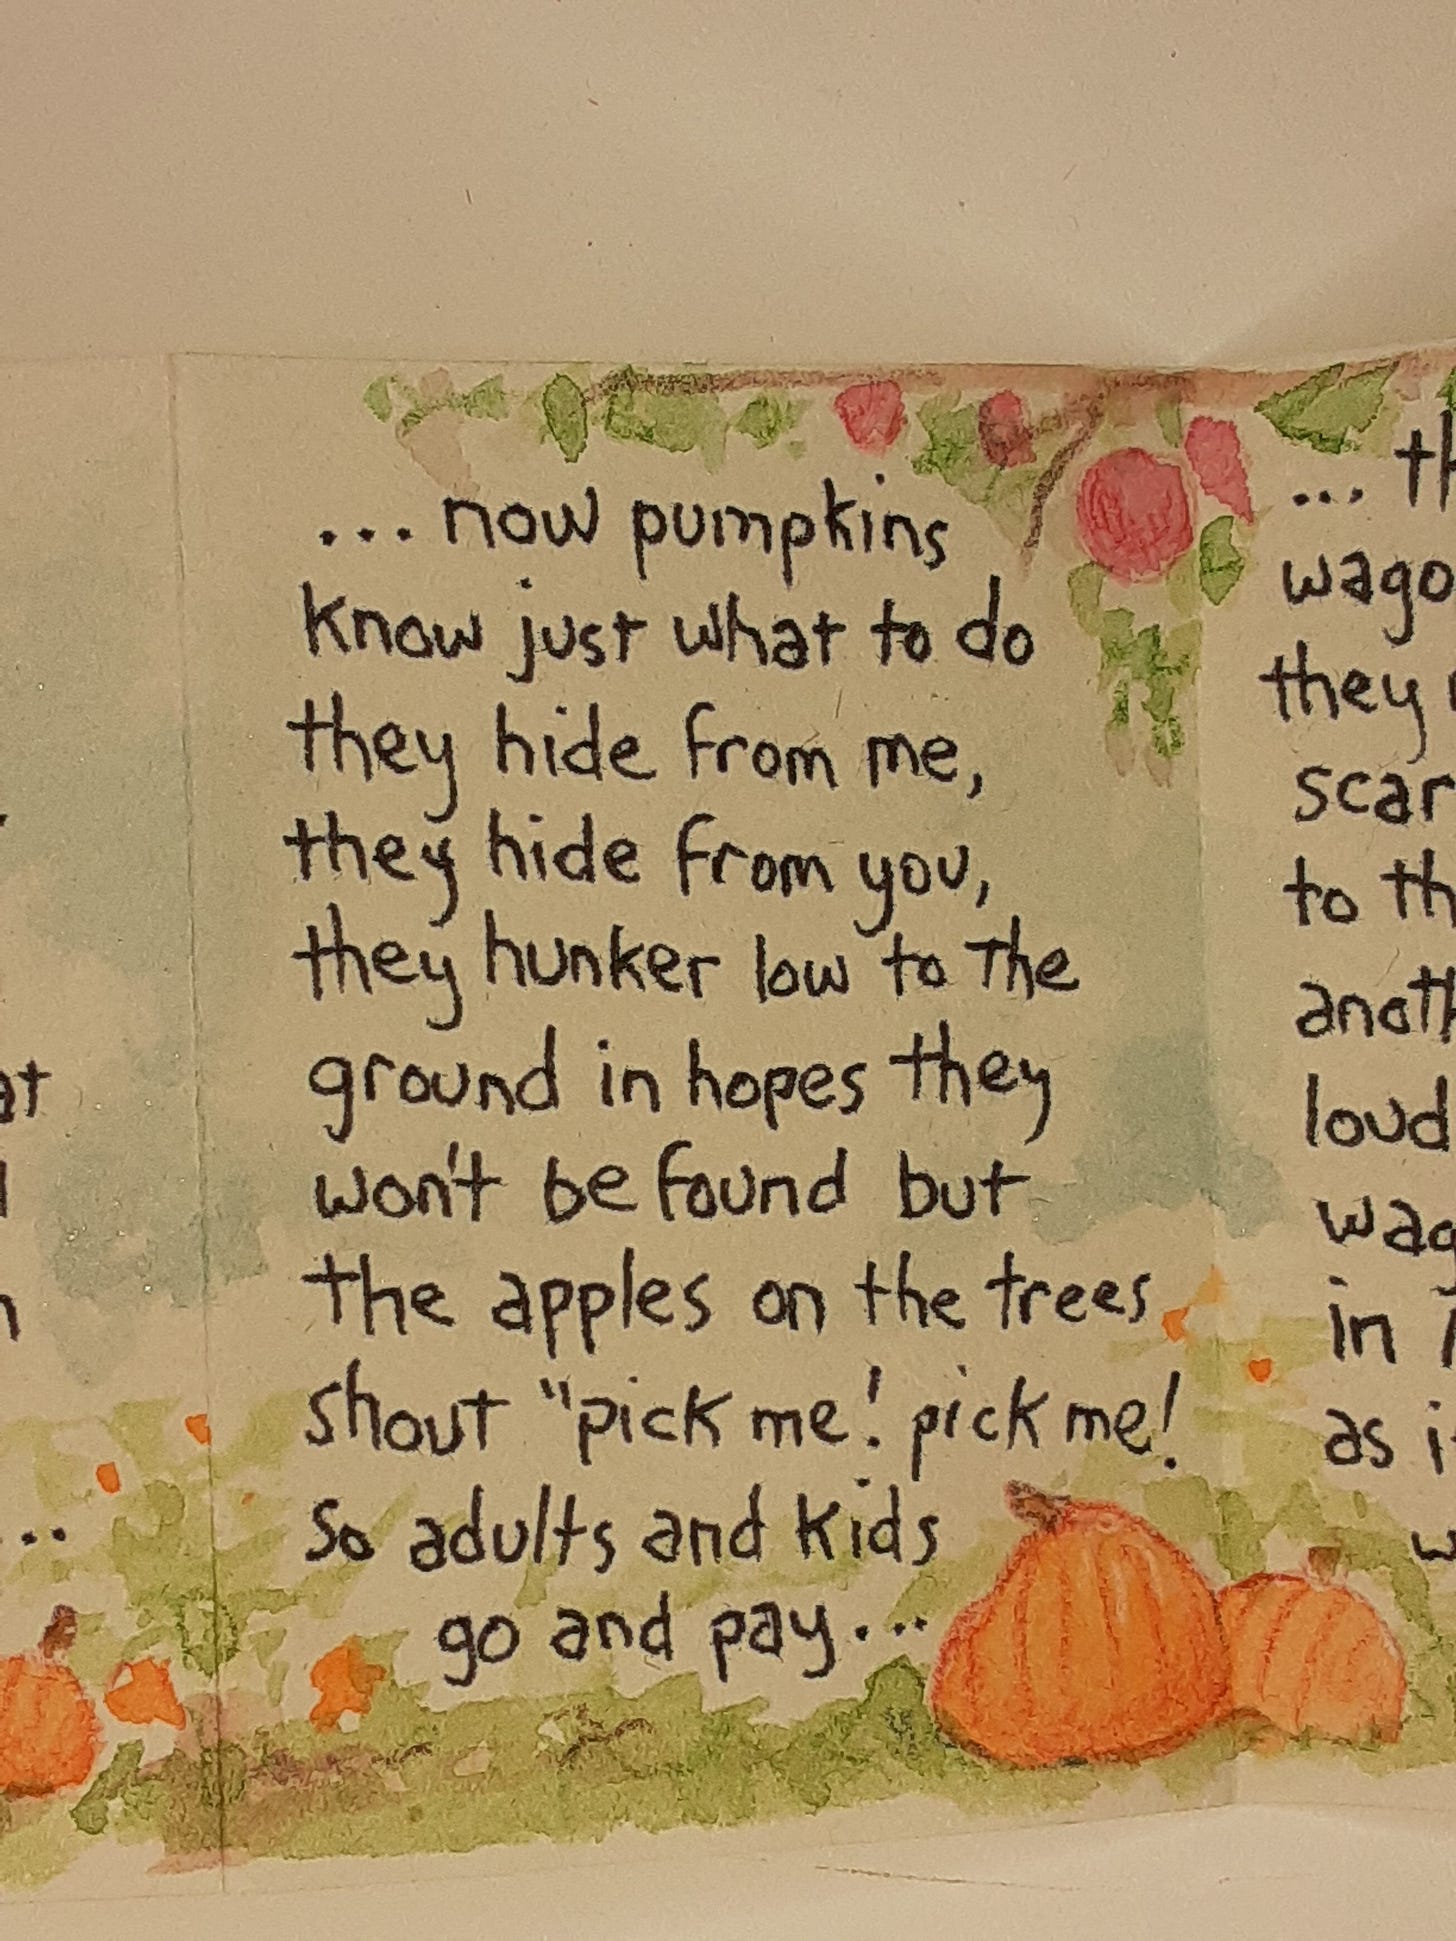 ... now pumpkins
know just what to do
they hide from me,
they hide from you,
they hunker low to the
ground in hopes they
won't be found but
the apples on the trees
shout "pick me! pick me!
so adults and kids
go and pay...
...
scar
to
loud
in
as